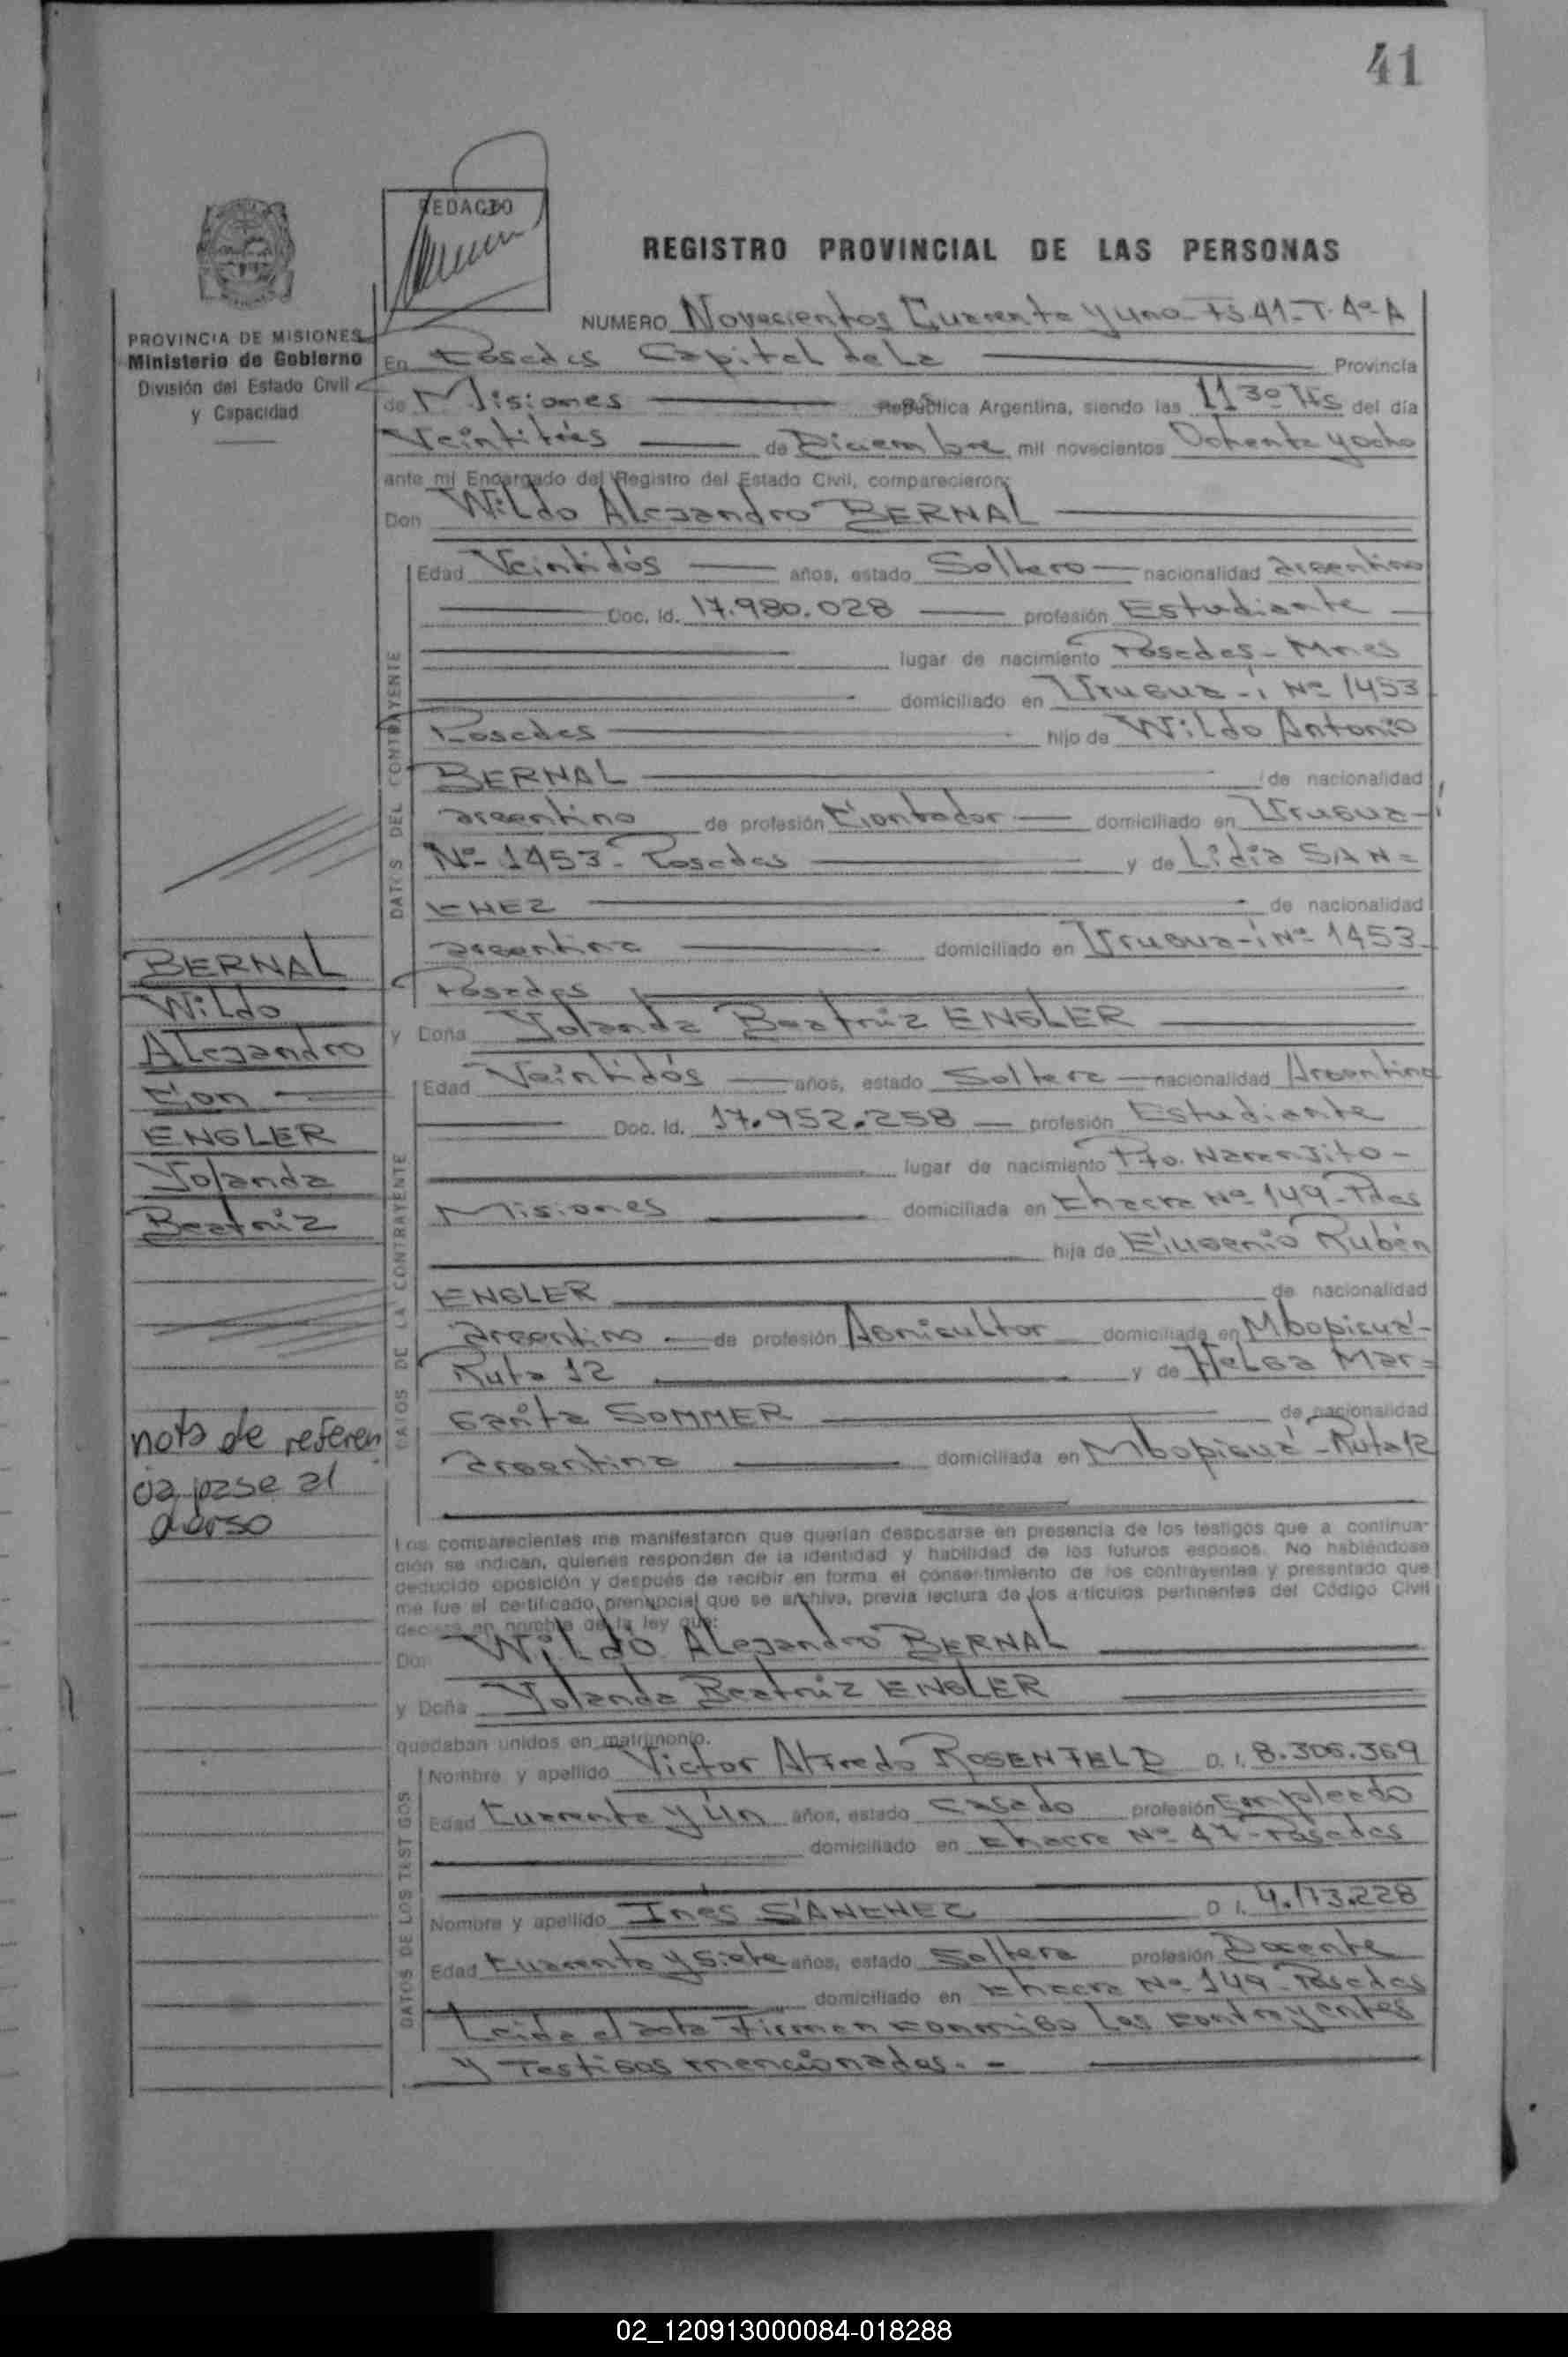 41
REDACTO
REGISTRO PROVINCIAL DE LAS PERSONAS
NUMERO Novecientos Cuarenta y uno - Fs 41 - T. 4º A
PROVINCIA DE MISIONES
Ministerio de Gobierno
División del Estado Civil
y Capacidad
En Posadas Capital de La Provincia
de Misiones República Argentina, siendo las 11 30 Hs del día
Veintitrés de Diciembre mil novecientos Ochenta y ocho
ante mi Encargado del Registro del Estado Civil, comparecieron:
Don Wildo Alejandro BERNAL
DATOS DEL CONTRAYENTE
Edad Veintidós años, estado Soltero nacionalidad argentino
Doc. Id. 17.980.028 profesión Estudiante
lugar de nacimiento Posadas - Mnes
domiciliado en Urugua-í Nº 1453
Posadas hijo de Wildo Antonio
BERNAL de nacionalidad
argentino de profesión Contador domiciliado en Urugua-í
Nº 1453 - Posadas y de Lidia SAN=
CHEZ de nacionalidad
argentina domiciliado en Urugua-í Nº 1453
Posadas
y Doña Yolanda Beatriz ENGLER
DATOS DE LA CONTRAYENTE
Edad Veintidós años, estado Soltera nacionalidad Argentina
Doc. Id. 17.952.258 profesión Estudiante
lugar de nacimiento Pto. Naranjito -
Misiones domiciliada en Chacra Nº 149 - Pdas
hija de Eugenio Rubén
ENGLER de nacionalidad
argentino de profesión Agricultor domiciliado en Mbopicuá -
Ruta 12 y de Helga Mar=
garita SOMMER de nacionalidad
argentina domiciliada en Mbopicuá - Ruta 12
BERNAL
Wildo
Alejandro
Con
ENGLER
Yolanda
Beatriz
nota de referen
cia pase al
dorso
Los comparecientes me manifestaron que querían desposarse en presencia de los testigos que a continua-
ción se indican, quienes responden de la identidad y habilidad de los futuros esposos. No habiéndose
deducido oposición y después de recibir en forma el consentimiento de los contrayentes y presentado que
me fue el certificado prenupcial que se archiva, previa lectura de los artículos pertinentes del Código Civil
declaro en nombre de la ley que:
Don Wildo Alejandro BERNAL
y Doña Yolanda Beatriz ENGLER
quedaban unidos en matrimonio.
DATOS DE LOS TESTIGOS
Nombre y apellido Victor Alfredo ROSENFELD D. I. 8.306.369
Edad Cuarenta y Un años, estado Casado profesión Empleado
domiciliado en Chacra Nº 47 - Posadas
Nombre y apellido Inés SANCHEZ D. I. 4.113.228
Edad Cuarenta y Siete años, estado Soltera profesión Docente
domiciliado en Chacra Nº 149 - Posadas
Leida el acta Firman conmigo Los contrayentes
y Testigos mencionados. -
02_120913000084-018288